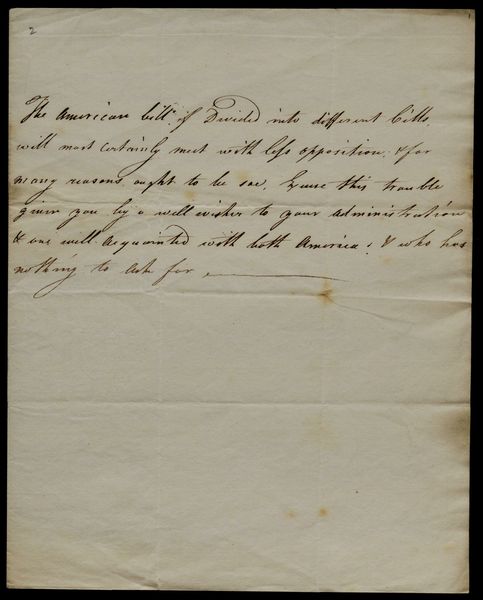 2
The American bill. if Divided into different bills,
will most certainly meet with less opposition; & for
many reasons ought to be soe. Excuse this trouble
given you by a well wisher to your administration
& one well acquainted with both America: & who has
nothing to ask for